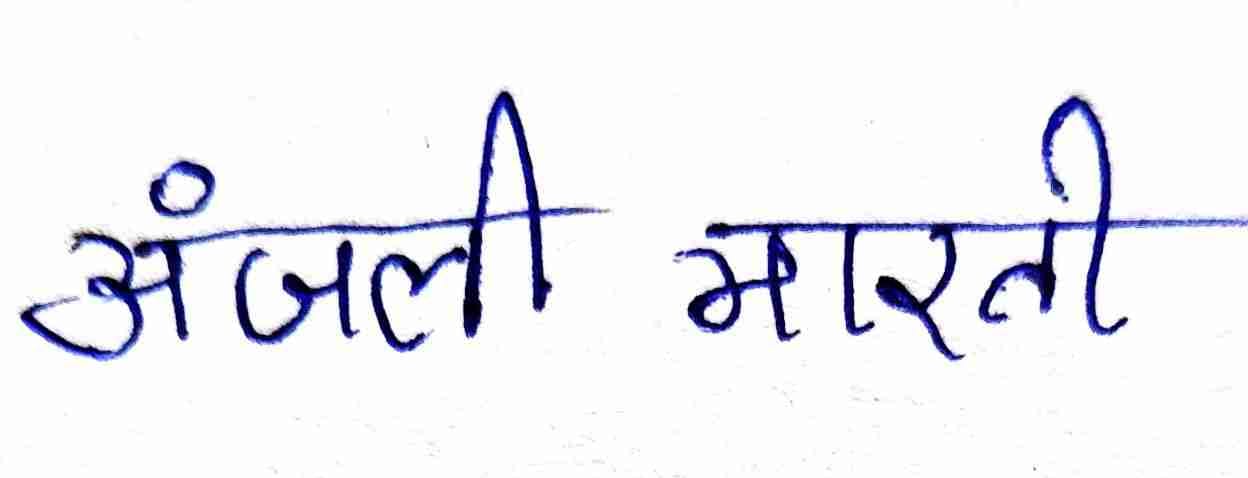 अंजली भारती